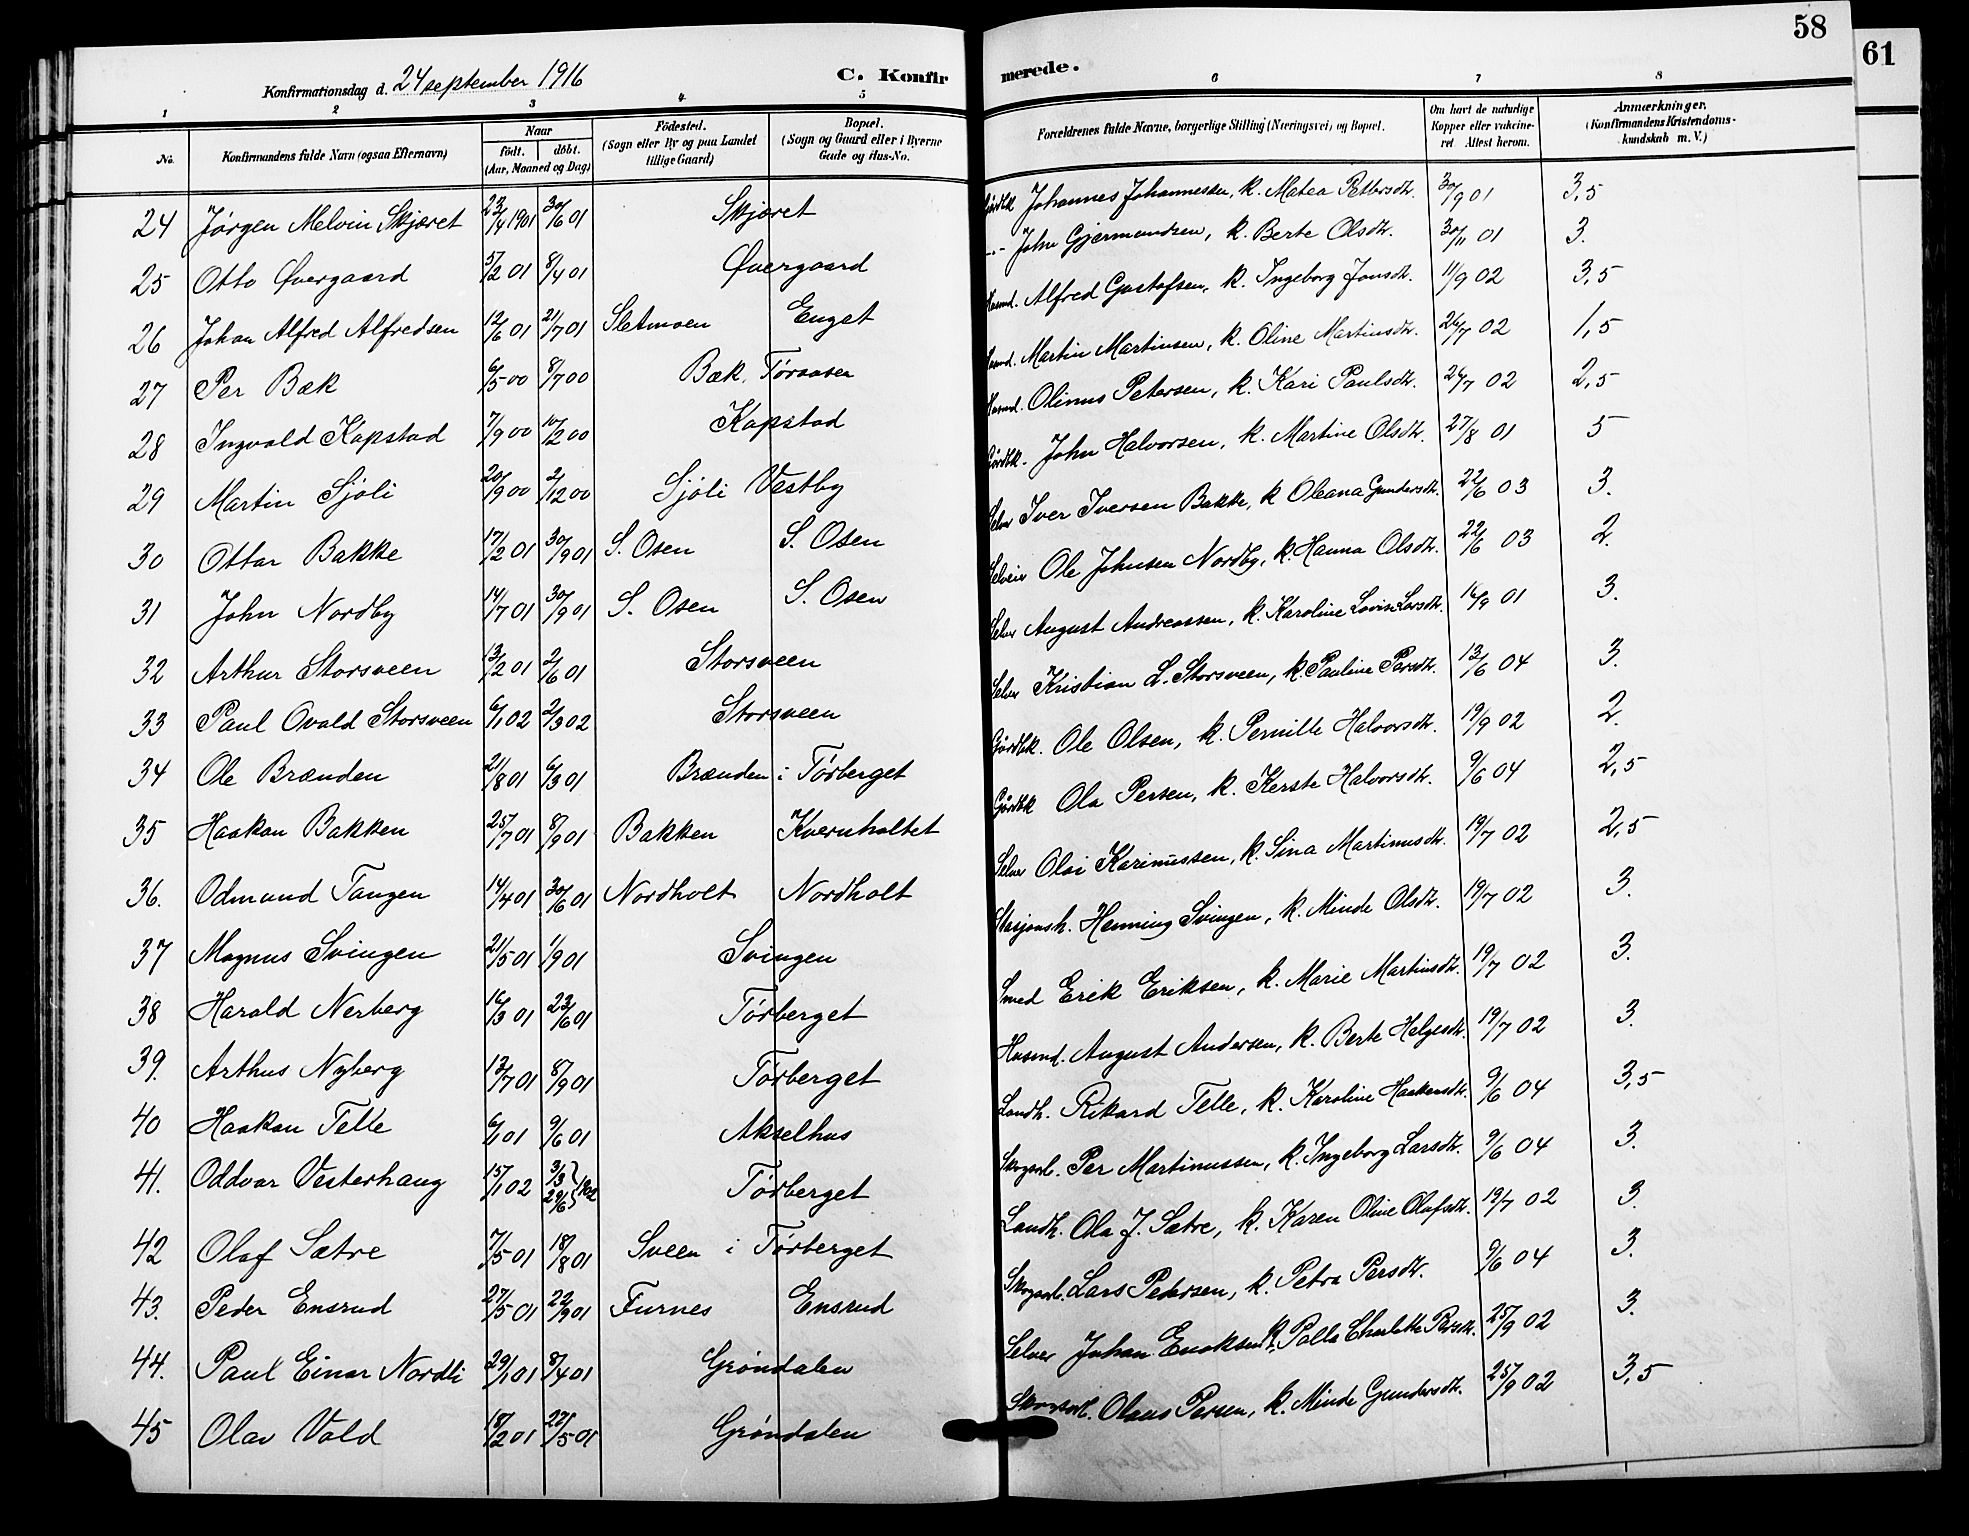 58
61
Konfirmationsdag d. 24 september 1916 C. Konfirmerede.
1 2 3 4 5 6 7 8
No. Konfirmandens fulde Navn (ogsaa Efternavn) Naar født. døbt. (Aar, Maaned og Dag) Fødested. (Sogn eller By og paa Landet tillige Gaard) Bopæl. (Sogn og Gaard eller i Byerne Gade og Hus-No. Forældrenes fulde Navne, borgerlige Stilling (Næringsvei) og Bopæl. Om havt de naturlige Kopper eller vakcineret Attest herom. Anmærkninger. (Konfirmandens Kristendomskundskab m. V.)
24 Jørgen Melvin Skjæret 23/4 1901 30/6 01 Skjæret Gårdbk Johannes Johannessen, k. Matea Pettersdtr. 30/9 01 3,5
25 Otto Øvergaard 5/2 01 8/4 01 Øvergaard -"- John Gjermundsen, k. Berte Olsdtr. 30/11 01 3.
26 Johan Alfred Alfredsen 12/6 01 21/7 01 Sletmoen Enget Husmd. Alfred Gustafsen, k. Ingeborg Jonsdtr. 11/9 02 3,5
27 Per Bæk 6/5 00 8/7 00 Bæk, Tøraasen Husmd. Martin Martinsen, k. Oline Martinsdtr. 26/7 02 1,5
28 Ingvald Kapstad 7/9 00 10/2 00 Kapstad Husmd. Olinus Petersen, k. Kari Paulsdtr. 26/7 02 2,5
29 Martin Sjøli 20/9 00 2/12 00 Sjøli Vestby Gårdbk. John Halvorsen, k. Martine Olsdtr. 27/8 01 5
30 Ottar Bakke 17/2 01 30/9 01 S. Osen S. Osen Selver Iver Iversen Bakke, k Oleana Gundersdtr. 22/6 03 3.
31 John Nordby 14/7 01 30/9 01 S. Osen S. Osen Selveier Ole Johnsen Nordby, k. Hanna Olsdtr. 22/6 03 2.
32 Arthur Storsveen 13/2 01 2/6 01 Storsveen Selver August Andreassen, k. Karoline Lovise Larsdtr. 16/9 01 3.
33 Paul Ovald Storsveen 6/1 02 2/3 02 Storsveen Selver Kristian L. Storsveen, k. Pauline Persdtr. 13/6 04 3.
34 Ole Brænden 21/8 01 6/3 01 Brænden i Tørberget Gårdbk. Ole Olsen, k. Pernille Halvorsdtr. 19/9 02 2.
35 Haakon Bakken 25/7 01 8/9 01 Bakken Kvernholtet Gårdbk Ola Persen, k. Kerste Halvorsdtr. 9/6 04 2,5
36. Odmund Tangen 14/4 01 30/6 01 Nordholt Nordholt Selver Olai Karinussen, k. Sina Martinusdtr. 19/7 02 2,5
37 Magnus Svingen 21/5 01 1/9 01 Svingen Stasjonsh. Henning Svingen, k. Minde Olsdtr. 19/7 02 3.
38 Harald Nerberg 16/3 01 23/6 01 Tørberget Smed Erik Eriksen, k. Marie Martinsdtr. 19/7 02 3.
39. Arthus Nyberg 13/7 01 8/9 01 Tørberget Husmd. August Andersen, k. Berte Helgesdtr. 19/7 02 3.
40 Haakon Telle 6/1 01 9/6 01 Akselhus Landh. Rikard Telle, k. Karoline Haakensdtr. 9/6 04 3,5
41. Oddvar Vesterhaug 15/1 02 3/3 29/6 } 1902 Tørberget Skogsarb. Per Martinussen, k. Ingeborg Larsdtr. 9/6 04 3.
42 Olaf Sætre 7/5 01 18/8 01 Sveen i Tørberget Landh. Ola J. Sætre, k. Karen Oline Olafsdtr. 19/7 02 3.
43. Peder Ensrud 27/5 01 22/9 01 Furnes Ensrud Skogsarb. Lars Pedersen, k. Petra Persdtr. 9/6 04 3.
44. Paul Einar Nordli 29/1 01 8/4 01 Grøndalen Selver Johan Enoksen k. Palla Charlotte Persdtr. 25/9 02 3.
45 Olav Vold 18/2 01 27/5 01 Grøndalen Skogsarb. Olaus Persen, k. Minde Gundersdtr. 25/9 02 3,5